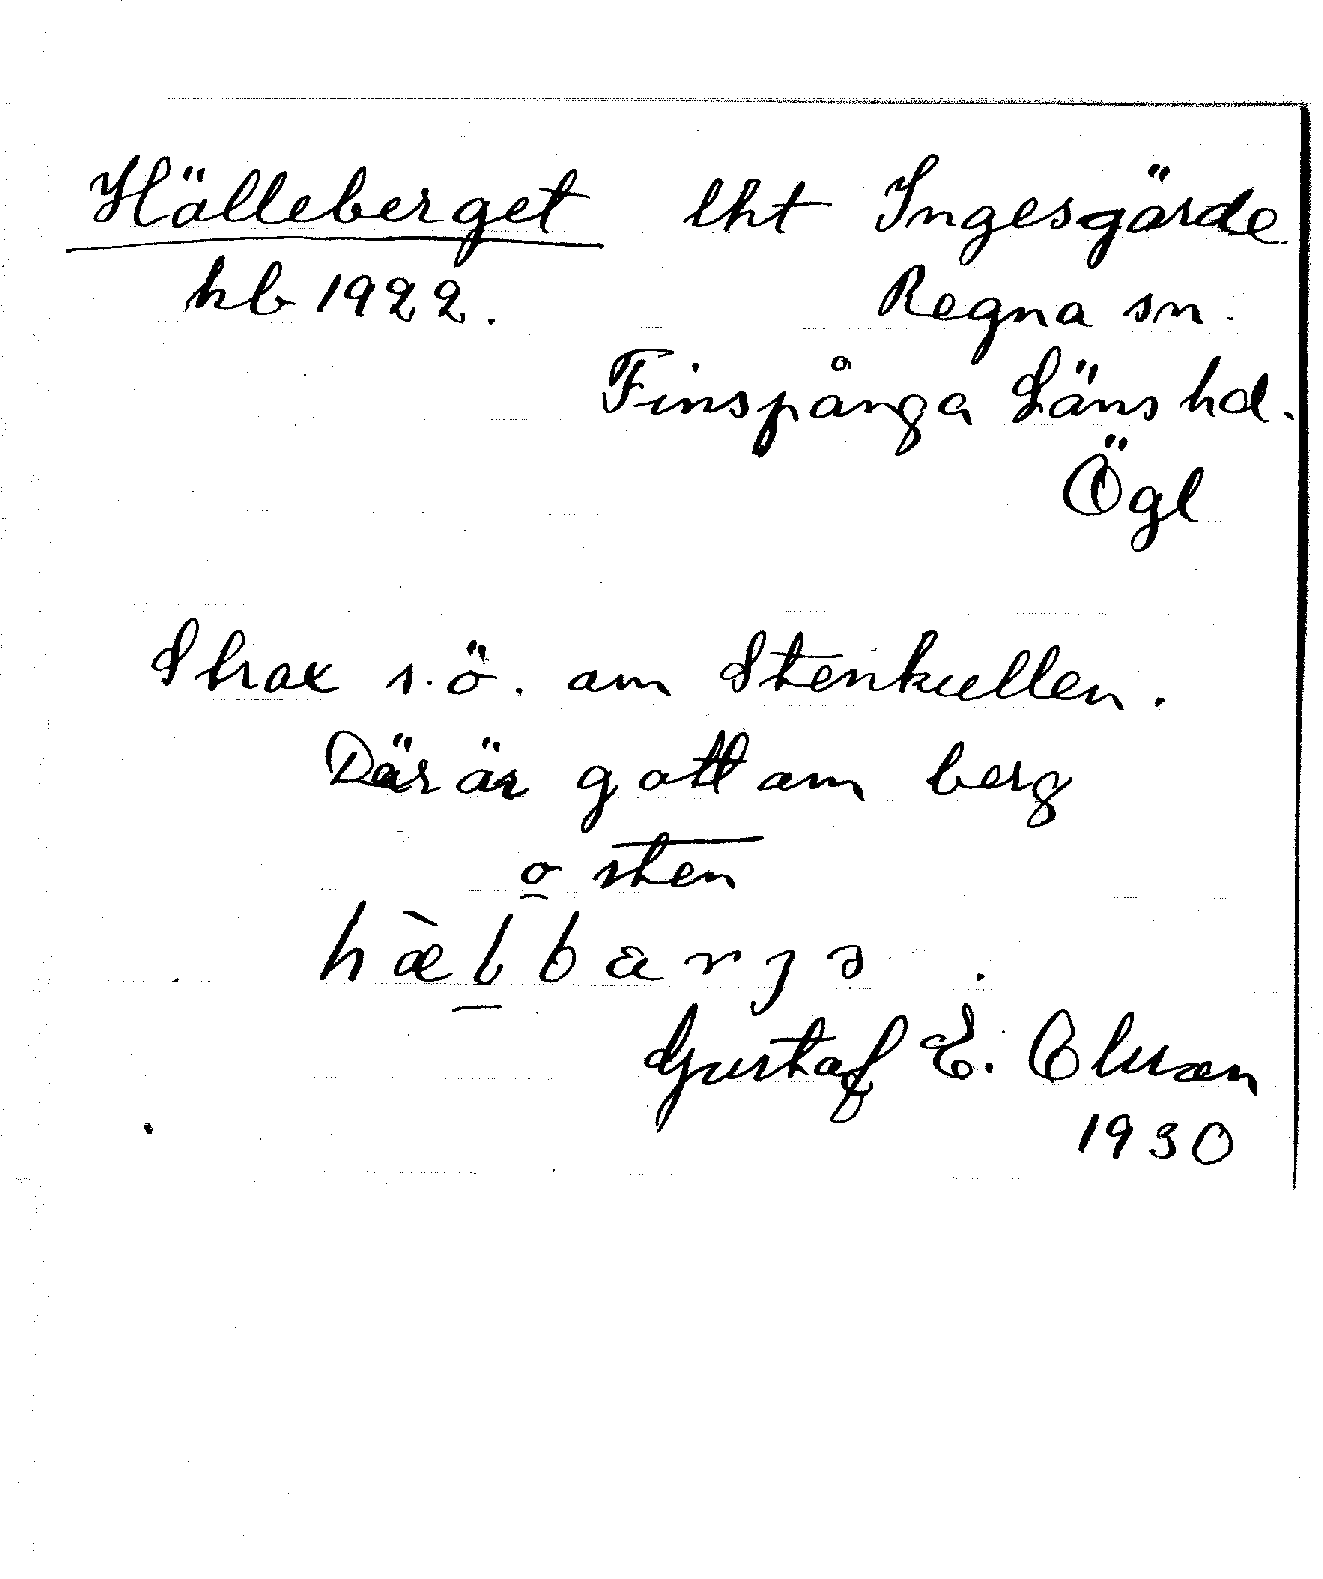 Hälleberget lht Ingesgärde
hb 1922. Regna sn.
Finspånga Läns hd.
Ögl
Strax s.ö. om Stenkullen.
Där är gott om berg
o sten
hæ̀lbærjə.
Gustaf E. Olsson
1930